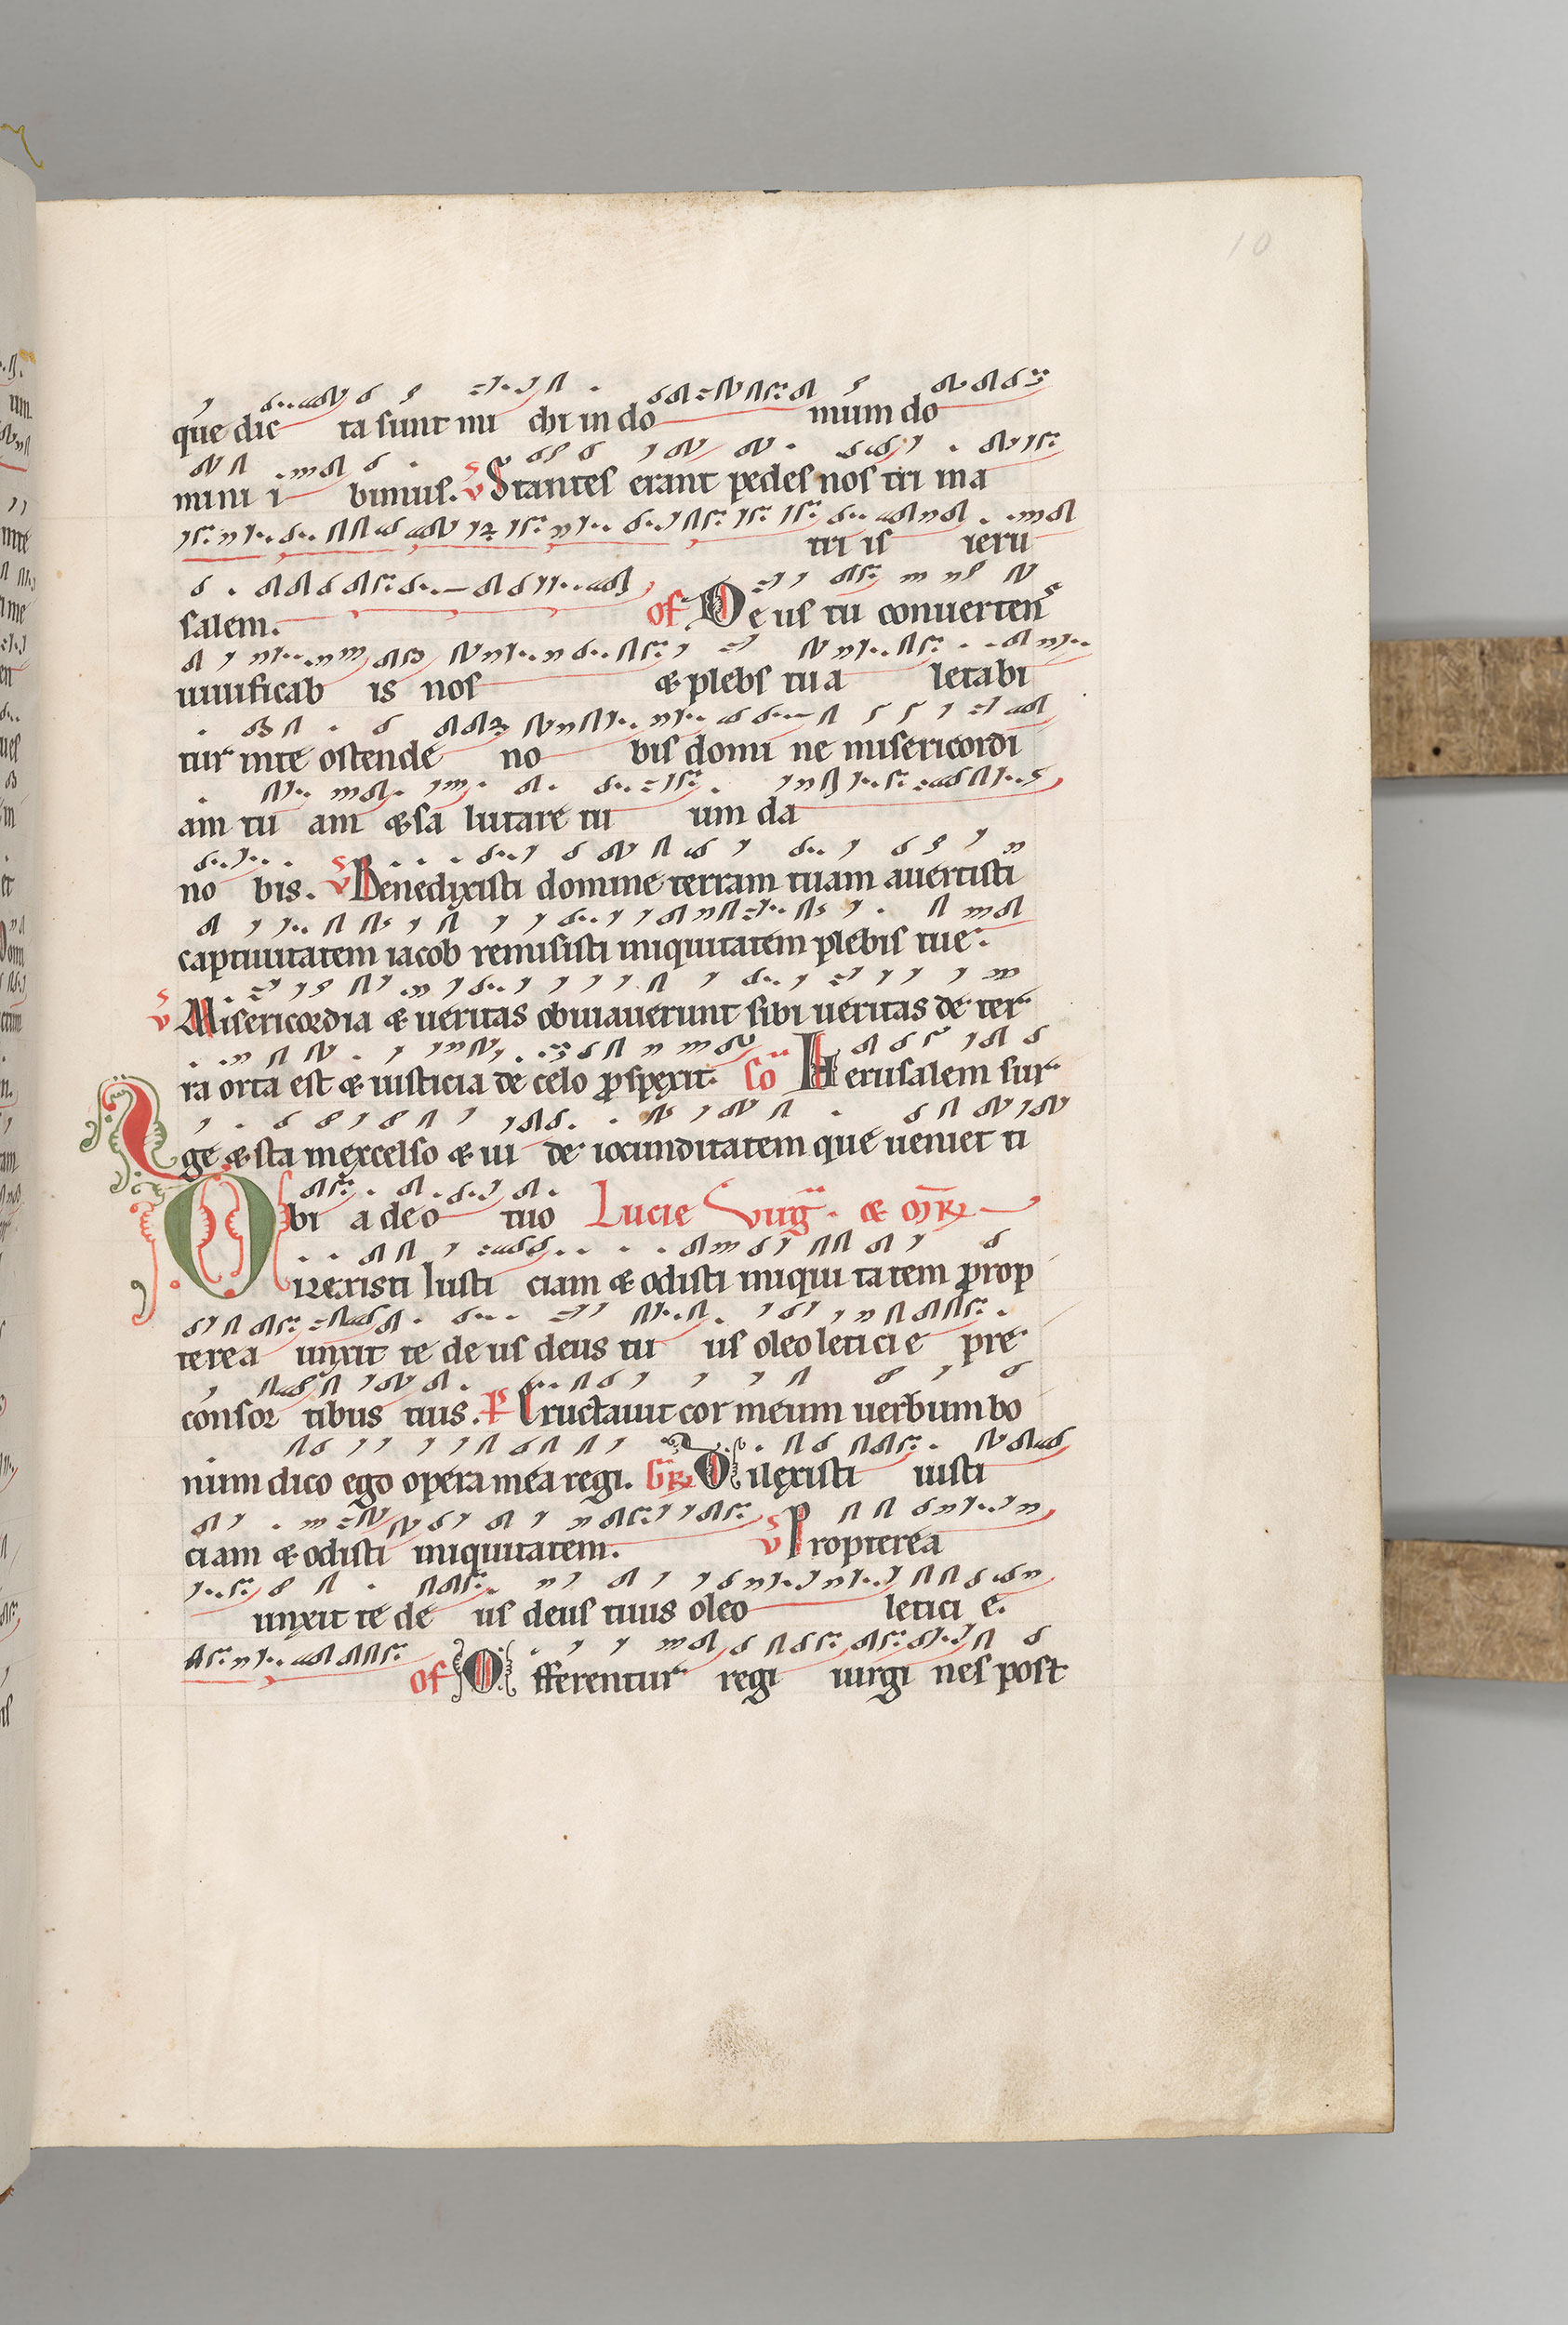 10
que dic ta sunt mi chi in do mum do
mini i bimus. v Stantes erant pedes nos tri in a
tri is ieru
salem. of De us tu conuertens
uiuificab is nos & plebs tu a letabi
tur in te ostende no bis domi ne misericordi
am tu am & sa lutare tu um da
no bis. v Benedixisti domine terram tuam auertisti
captiuitatem iacob remisisti iniquitatem plebis tue.
v Misericordia & ueritas obuiauerunt sibi ueritas de ter
ra orta est & iusticia de celo ꝓspexit. Co Iherusalem sur
ge & sta in excelso & ui de iocunditatem que ueniet ti
bi a deo tuo Lucie Virg. & MR
Dilexisti Iusti ciam & odisti iniqui tatem prop
terea unxit te de us deus tu us oleo leticie pre
consor tibus tuis. P Eructauit cor meum uerbum bo
num dico ego opera mea regi. GR Dilexisti iusti
ciam & odisti iniquitatem. v Propterea
unxit te de us deus tuus oleo letici e.
of Offerentur regi uirgi nes post